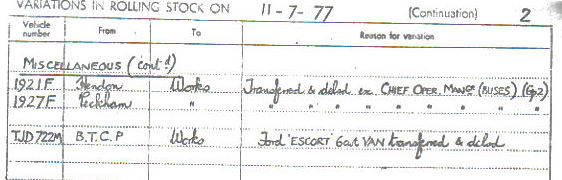 VARIATIONS IN ROLLING STOCK ON 11-7-77 (Continuation) 2
Vehicle number From To Reason for variation
MISCELLANEOUS (cont d)
1921F Hendon Works Transferred & delsd ex. CHIEF OPER. MANGR (BUSES) (Gp2)
1927F Peckham " " " " " " " " "
TJD 722M B.T.C.P Works Ford 'ESCORT' 6cwt VAN transferred & delsd